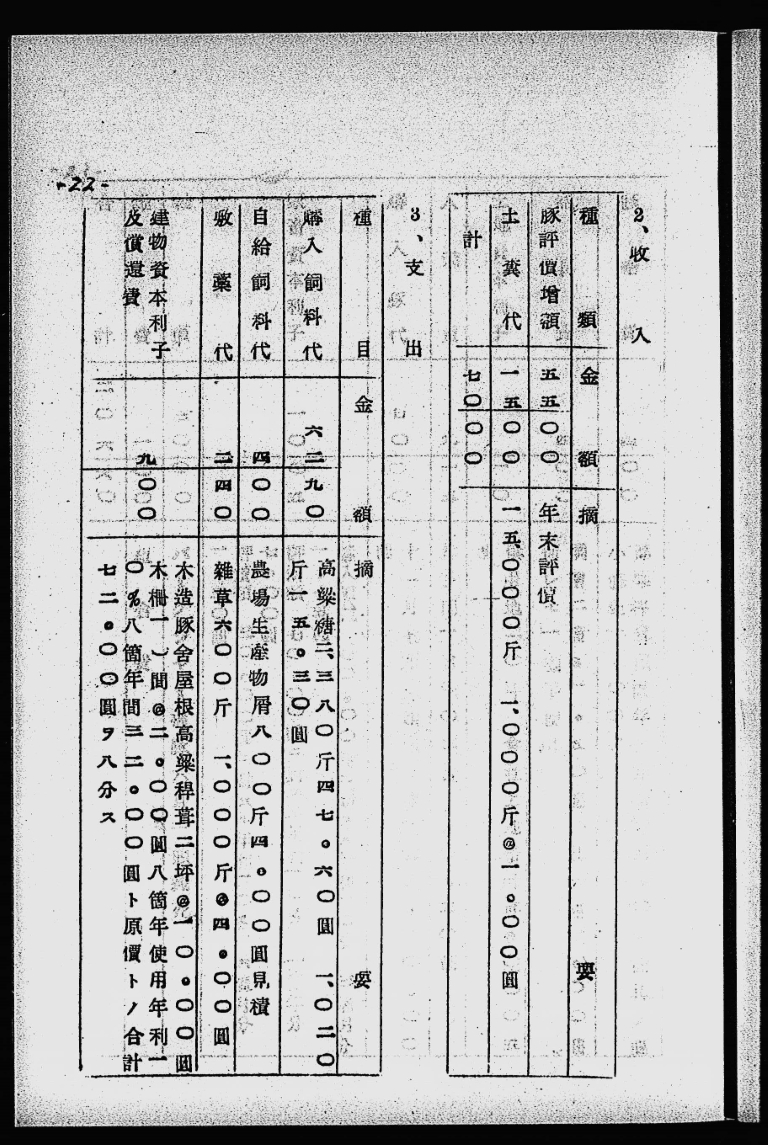 -22-
2、收入
種類 金額 摘要
豚評價增額 五五〇〇 年末評價
土糞代 一五〇〇 一五〇〇〇斤 一、〇〇〇斤@一。〇〇圓
計 七〇〇〇
3、支出
種目 金額 摘要
購入飼料代 六二九〇 高粱糖二、三八〇斤四七。六〇圓 一、〇二〇
斤一五。三〇圓
自給飼料代 四〇〇 農場生產物屑八〇〇斤四。〇〇圓見積
敷藁代 二四〇 雜草六〇〇斤 一、〇〇〇斤@四。〇〇圓
建物資本利子
及償還費 九〇〇 木造豚舍屋根高粱稈葺二坪@一〇。〇〇圓
木柵一)間@二。〇〇圓八箇年使用年利一
〇%八箇年間三二。〇〇圓ト原價トノ合計
七二。〇〇圓ヲ八分ス